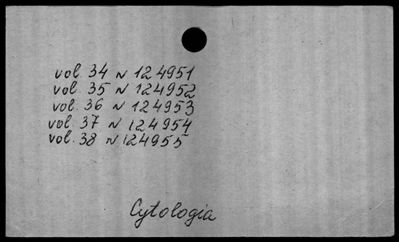 vol. 34 N 124951
vol. 35 N 124952
vol. 36 N 124953
vol. 37 N 124954
vol. 38 N 124955
Cytologia